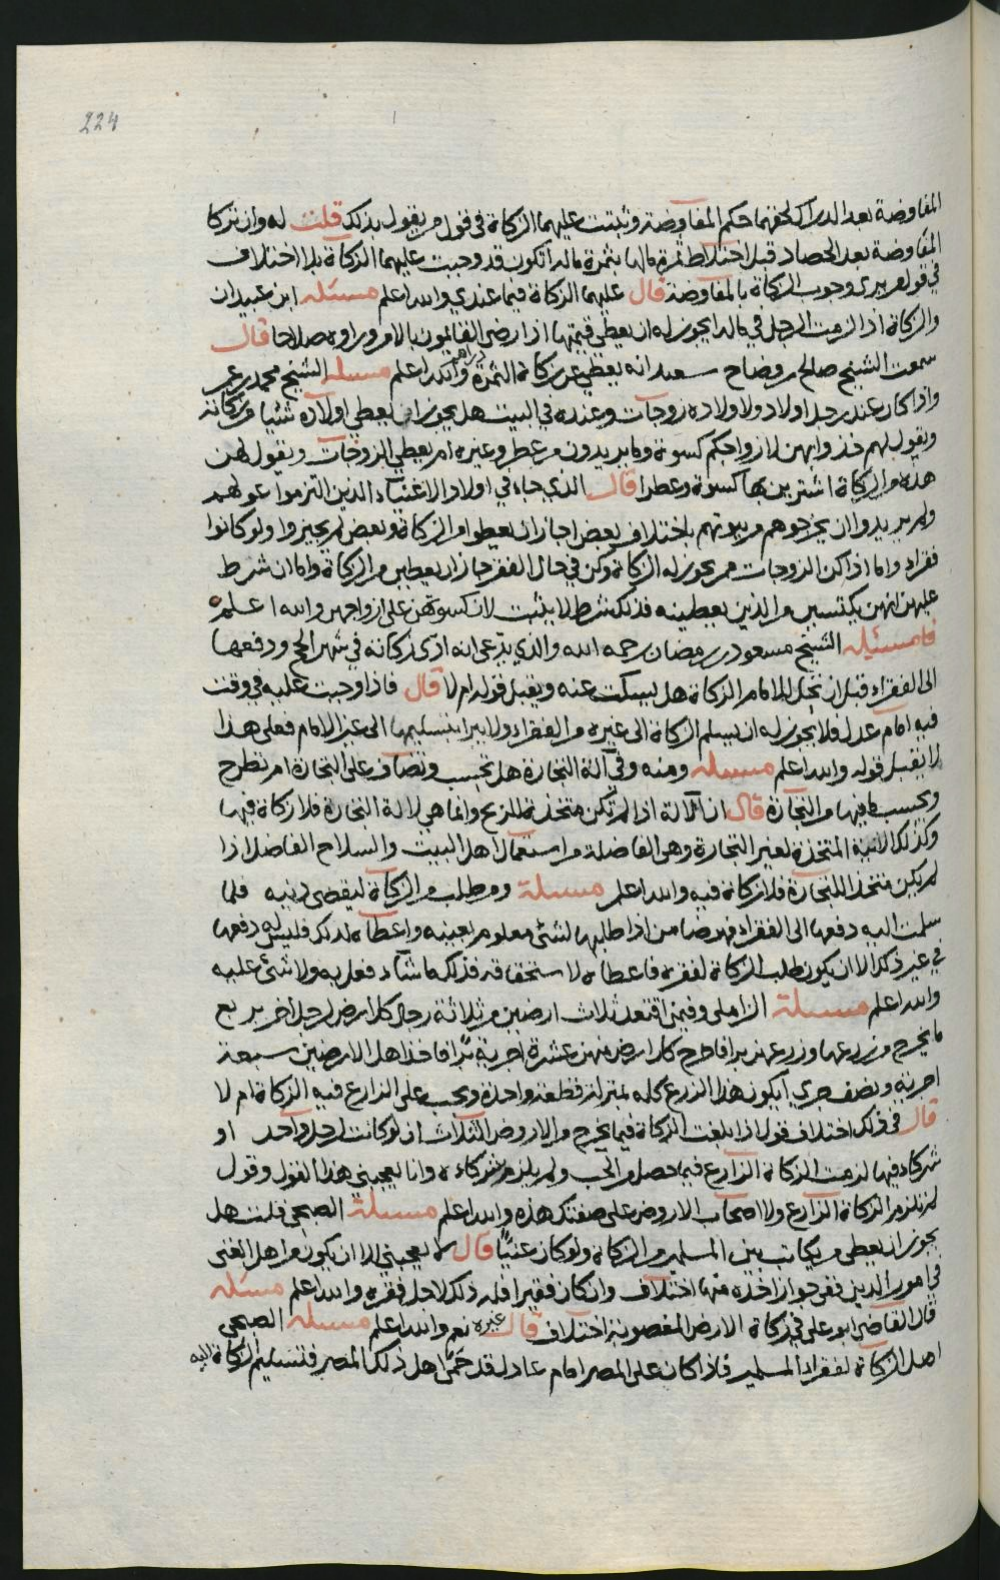 224
المفاوضة بعد الدراك لحقهما حكم المفاوضة وثبتت عليهما الزكاة في قول من يقول بذلك قلت له وان تركا
المفاوضة بعد الحصاد قبل اختلاط ثمرة مالها بثمرة ماله اتكون قد وجبت عليهما الزكاة بلا اختلاف
في قول من يرى وجوب الزكاة بالمفاوضة قال عليهما الزكاة فيما عندي والله اعلم مسئله ابن عبيدان
والزكاة اذا لزمت الرجل في ماله ايجوز له ان يعطي قيمتها اذا رضي القايمون بالامر وراوه صلاحا قال
سمعت الشيخ صالح بن وضاح سعيد انه يعطي عن زكاة الثمرة دراهم والله اعلم مسئله الشيخ محمد بن عمر
واذا كان عند رجل اولاد ولاولاده زوجات وعنده في البيت هل يجوز ان يعطي اولاده شيئا من زكاته
ويقول لهم خذوا بهن لازواجكم كسوة وما يريدون من عطر وغيره ام يعطي الزوجات ويقول لهن
هذه من الزكاة اشترين بها كسوة وعطرا قال الذي جاء في اولاد الاغنياء الذين التزموا عولهم
ولم يريدوا ان يخرجوهم من بيوتهم باختلاف بعض اجاز ان يعطوا من الزكاة وبعض لم يجيزوا ولو كانوا
فقراء واما اذا كن الزوجات ممن يجوز له الزكاة وكن في حال الفقر جاز ان يعطين من الزكاة واما ان شرط
عليهن انهن يكتسين من الذين يعطينه فذلك شرط لا يثبت لان كسوتهن على ازواجهن والله اعلم
مسئله الشيخ مسعود بن رمضان رحمه الله والذي يدعي انه ادى زكاته في شهر الحج ودفعها
الى الفقراء قبل ان تحل للامام الزكاة هل يسكت عنه ويقبل قوله ام لا قال فاذا وجبت عليه في وقت
فيه امام عدل فلا يجوز له ان يسلم الزكاة الى غيره من الفقراء ولا يبرا بتسليمها الى غير الامام فعلى هذا
لا يقبل قوله والله اعلم مسئله ومنه وفي آلة التجارة هل تحسب وتضاف على التجارة ام تطرح
ويحسب ما فيها من التجارة قال ان الآلة اذا لم تكن متخذة للربح وانما هي لالة التجارة فلا زكاة فيها
وكذلك الانية المتخذة لغير التجارة وهي الفاضلة من استعمال اهل البيت والسلاح الفاضل اذا
لم يكن متخذ اللتجارة فلا زكاة فيه والله اعلم مسئلة ومن طلب من الزكاة ليقضي دينه فلما
سلمت اليه دفعها الى الفقراء فهو ضامن اذا طلبها لشئ معلوم بعينه واعطاه لذلك فليس له دفعها
في غير ذلك الا ان يكون طلب الزكاة لفقره فاعطاه لاستحقاقه فذلك ما شاء فعل به ولا شئ عليه
والله اعلم مسئلة الزاملي وفيمن اقتعد ثلاث ارضين من ثلاثة رجال كل ارض لرجل آخر بربع
ما يخرج من زرعها وزرعهن برا فاخرج كل ارض منهن عشرة اجرية برا فاخذ اهل الارضين سبعة
اجرية ونصف جري ايكون هذا الزرع كله بمنزلة قطعة واحدة ويجب على الزارع فيه الزكاة ام لا
قال في ذلك اختلاف قول اذا بلغت الزكاة فيما يخرج من الاروض الثلاث ان لو كانت لرجل واحد او
شركاء فيها لزمت الزكاة الزارع فيما حصل من الحب ولم يلزم شركاءه وانا يعجبني هذا القول وقول
لم تلزم الزكاة الزارع ولا اصحاب الاروض على صفتك هذه والله اعلم مسئلة الصبحي قلت هل
يجوز ان يعطى من يكاتب بين المسلمين من الزكاة ولو كان غنيًّا قال لا يعجبني الا ان يكون من اهل الغنى
في امور الدين ففي جواز اخذه منها اختلاف وان كان فقيرا فله ذلك لاجل فقره والله اعلم مسئله
قال القاضي ابو علي في زكاة الارض المغصوبة اختلاف قال غيره نعم والله اعلم مسئله الصبحي
اصل الزكاة لفقراء المسلمين فاذا كان على المصر امام عادل قد حمى اهل ذلك المصر فتسليم الزكاة اليه